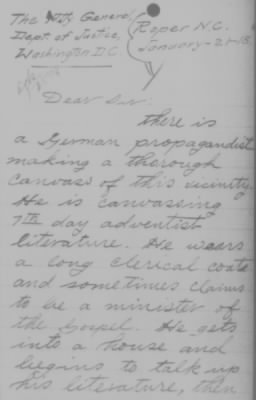 The Atty General,
Dept. of Justice,
Washington D.C.
Roper N.C.
January-21-18.
Dear Sir.
there is
a German propagandist
making a thorough
canvass of this vicinity.
He is canvassing
7th day adventist
literature. He wears
a long clerical coat
and sometimes claims
to be a minister of
the Gospel. He gets
into a house and
begins to talk up
his literature, then